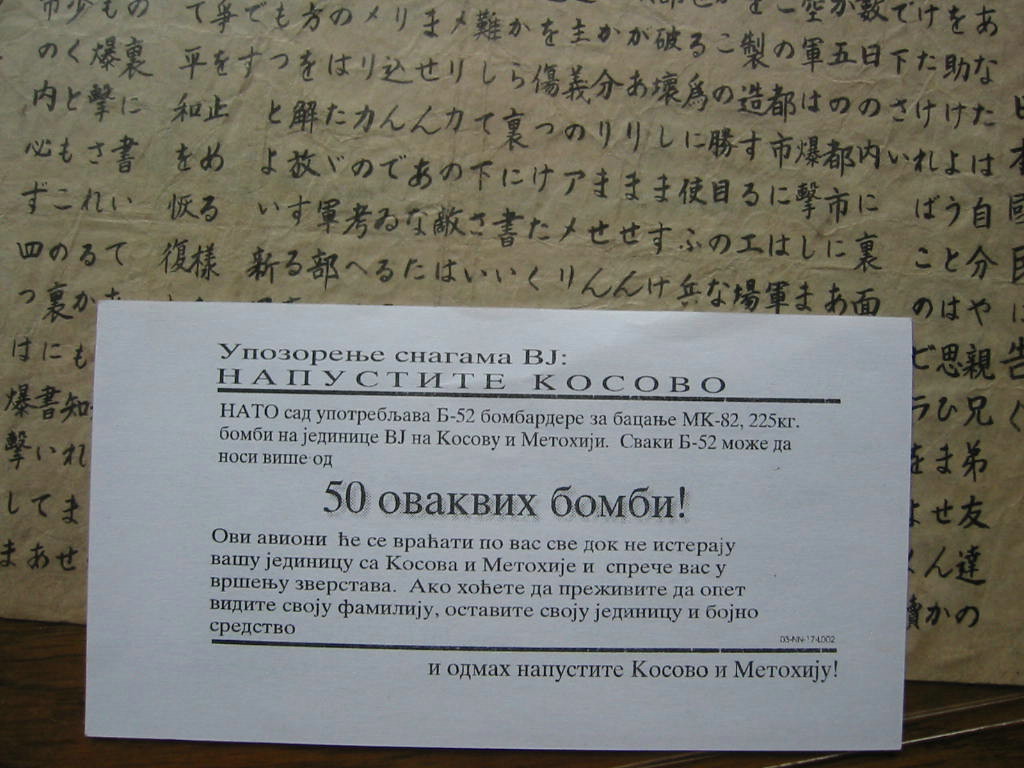 日本國民に告ぐ
あなたは自分や親兄弟友達の
を助けようとは思ひませんか
けたければこのビラをよ
で下さい
数日の内に裏面
か五の都市にあ
空軍は爆撃しま
の都市には軍
を製造するエ場
この勝目のな
る爲に使ふ兵
破壊しますけ
がありません
か分りません
主義のアメリ
を傷つけたく
から裏に書い
難して下さい
メリカの敵は
ませんあなた
り込んでゐる
メリカの考へ
のはたゞ軍部
方を解放する
もつとよい新
です
爭を止める様
て平和を恢復
の裏に書いてあ
も爆撃されるかも知れませ
少くともこの裏に書いてあ
市の内必ず四つは爆撃しま
Упозорење снагама ВЈ:
НАПУСТИТЕ КОСОВО
НАТО сад употребљава Б-52 бомбардере за бацање МК-82, 225кг.
бомби на јединице ВЈ на Косову и Метохији. Сваки Б-52 може да
носи више од
50 оваквих бомби!
Ови авиони ће се враћати по вас све док не истерају
вашу јединицу са Косова и Метохије и спрече вас у
вршењу зверстава. Ако хоћете да преживите да опет
видите своју фамилију, оставите своју јединицу и бојно
средство
03-NN-174L002
и одмах напустите Косово и Метохију!